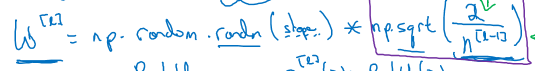 W^[l] = np.random.randn(shape) * np.sqrt(2/n^[l-1])